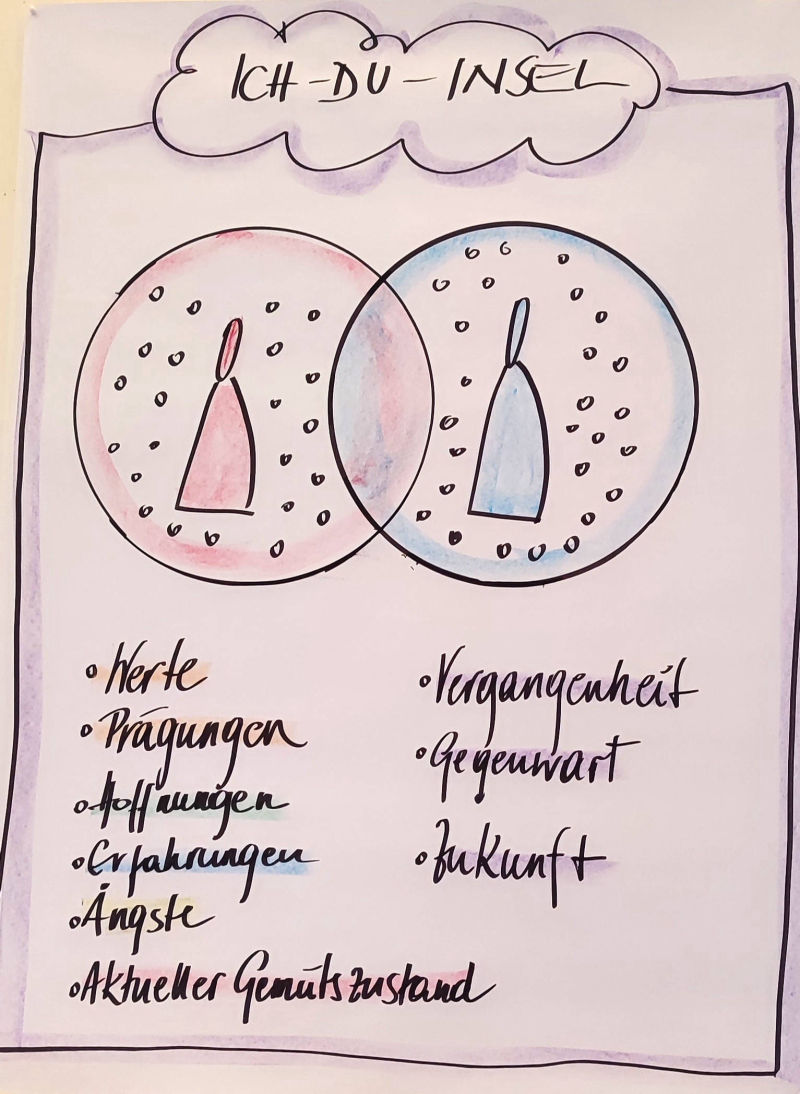 ICH-DU-INSEL
• Werte
• Prägungen
• Hoffnungen
• Erfahrungen
• Ängste
• Aktueller Gemütszustand
• Vergangenheit
• Gegenwart
• Zukunft